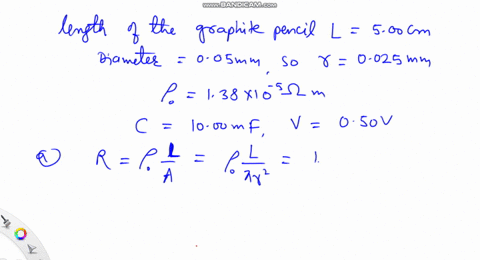 WWW.BANDICAM.COM
length of the graphite pencil L = 5.00 cm
Diameter = 0.05 mm, so r = 0.025 mm
ρ₀ = 1.38 × 10⁻⁵ Ω m
C = 10.00 mF, V = 0.50 V
a) R = ρ₀ L/A = ρ₀ L/πr² = 1